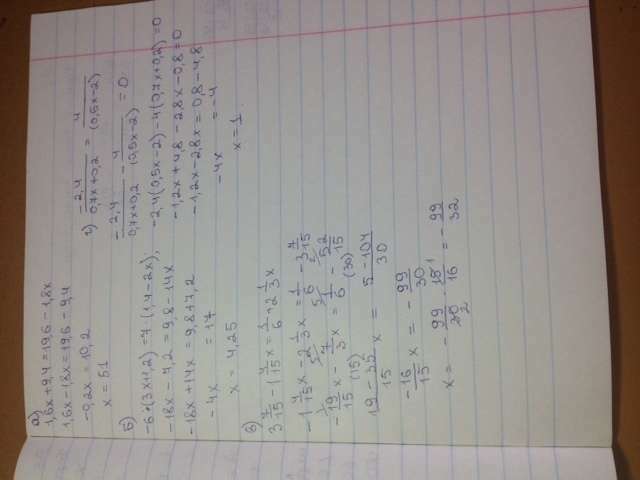 а)
1,6x + 9,4 = 19,6 - 1,8x
1,6x - 1,8x = 19,6 - 9,4
-0,2x = 10,2
x = 51
б)
-6·(3x+1,2) = 7·(1,4-2x);
-18x - 7,2 = 9,8 - 14x
-18x + 14x = 9,8 + 7,2
-4x = 17
x = 4,25
в)
3 7/15 - 1 4/15 x = 1/6 + 2 1/3 x
-1 4/15 x - 2 1/3 x = 1/6 - 3 7/15
-19/15 x - 7/3 x = 1/6 - 52/15
(15) (30)
19-35/15 x = 5-104/30
-16/15 x = -99/30
x = -99/30 · 15/16 = -99/32
г) -2,4/0,7x+0,2 = 4/(0,5x-2)
-2,4/0,7x+0,2 - 4/(0,5x-2) = 0
-2,4(0,5x-2) - 4(0,7x+0,2) = 0
-1,2x + 4,8 - 2,8x - 0,8 = 0
-1,2x - 2,8x = 0,8 - 4,8
-4x = -4
x = 1